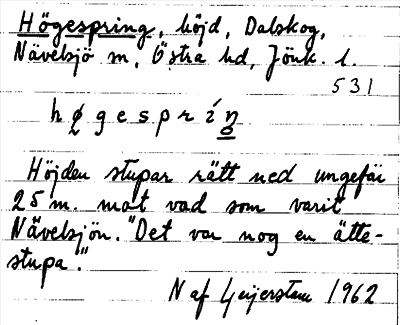 Högespring, höjd, Dalskog,
Nävelsjö sn, Östra hd, Jönk. l.
531
høgespríŋ
Höjden stupar rätt ned ungefär
25 m. mot vad som varit
Nävelsjön. "Det var nog en ätte-
stupa."
N af Geijerstam 1962